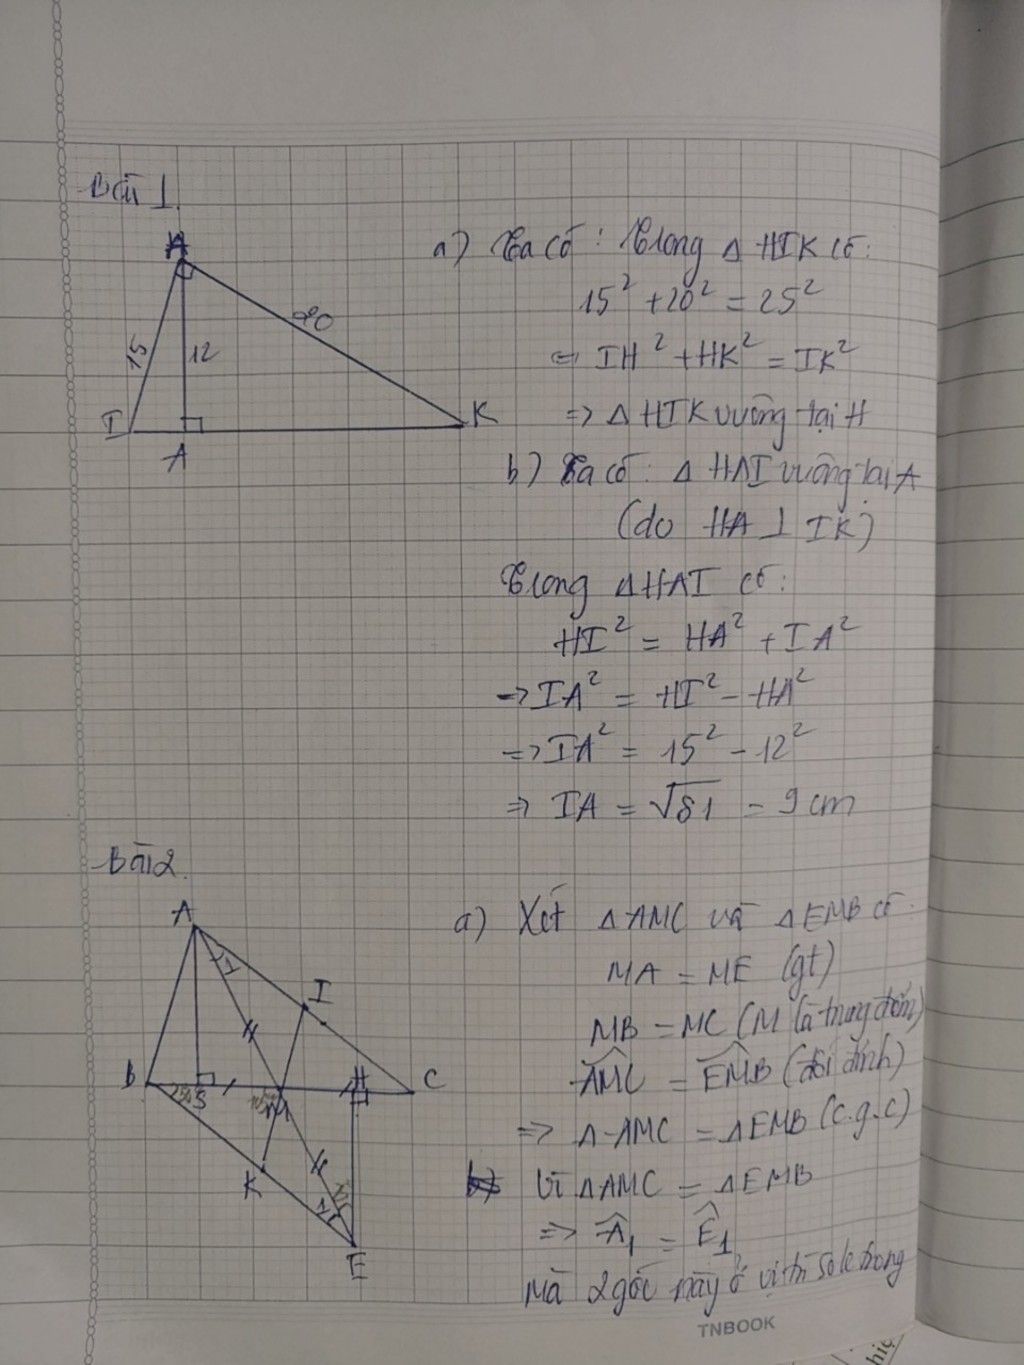 Bài 1.
H
15
12
20
I
A
K
a) Ta có: Trong Δ HIK có:
15² + 20² = 25²
⇒ IH² + HK² = IK²
⇒ Δ HIK vuông tại H
b) Ta có: Δ HAI vuông tại A
(do HA ⊥ IK)
Trong Δ HAI có:
HI² = HA² + IA²
⇒ IA² = HI² - HA²
⇒ IA² = 15² - 12²
⇒ IA = √81 = 9 cm
Bài 2.
A
1
I
B
H
C
M
K
1
E
a) Xét Δ AMC và Δ EMB có:
MA = ME (gt)
MB = MC (M là trung điểm)
AMC = EMB (đối đỉnh)
⇒ Δ AMC = Δ EMB (c.g.c)
Vì Δ AMC = Δ EMB
⇒ Â₁ = Ê₁
Mà 2 góc này ở vị trí so le trong
TNBOOK